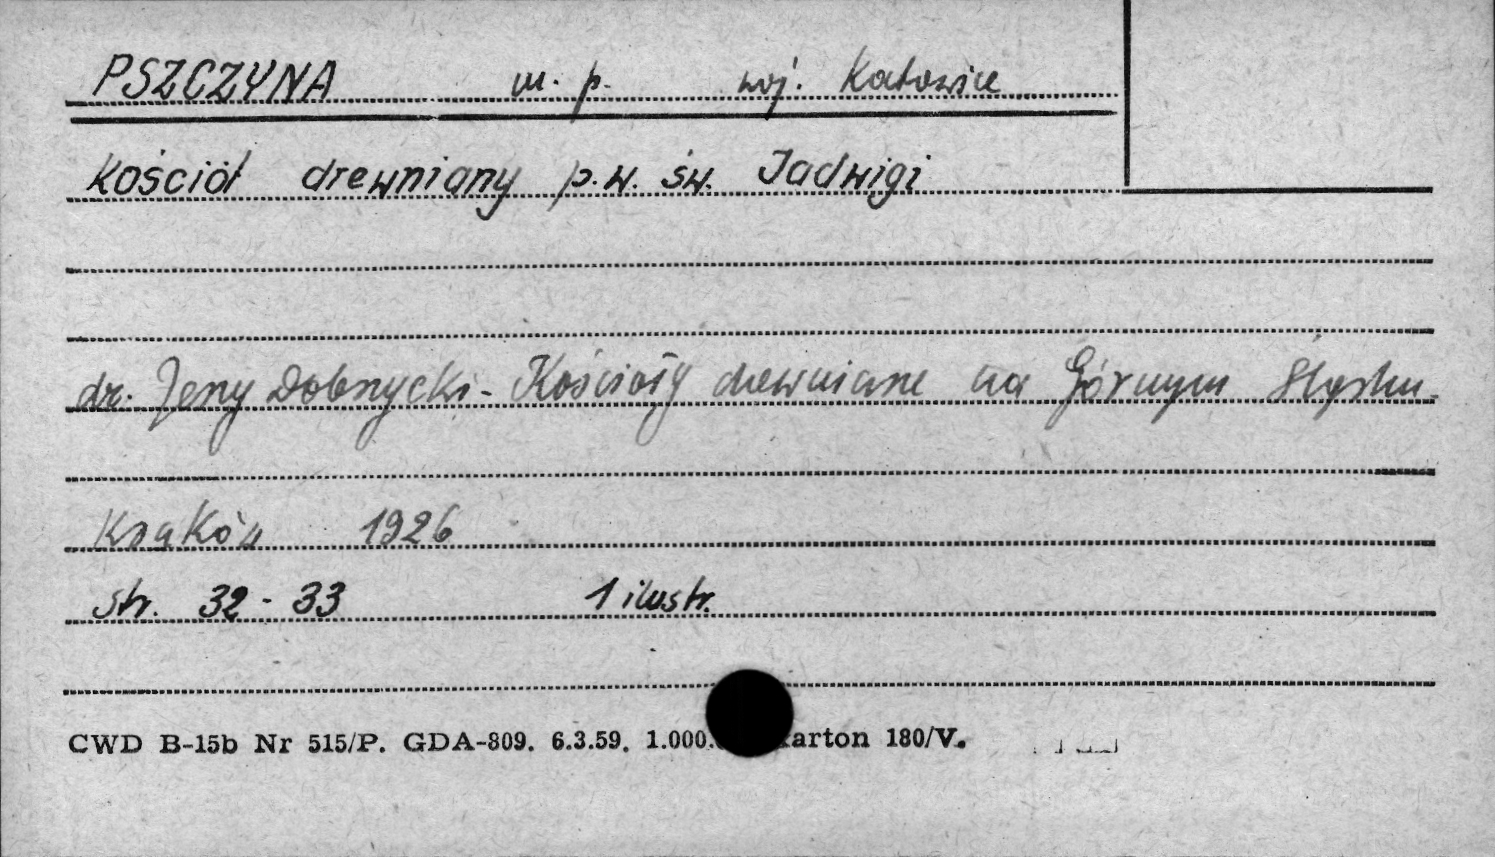 PSZCZYNA m. p. woj. Katowice
Kościół drewniany p.w. św. Jadwigi
dr. Jerzy Dobrzycki - Kościoły drewniane na Górnym Śląsku.
Kraków 1926
str. 32 - 33 1 ilustr.
CWD B-15b Nr 515/P. GDA-809. 6.3.59. 1.000. karton 180/V.